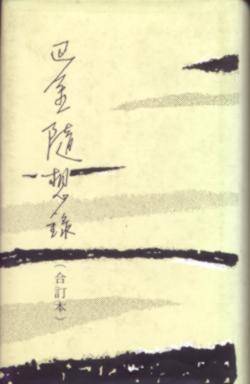 巴金隨想錄
(合訂本)